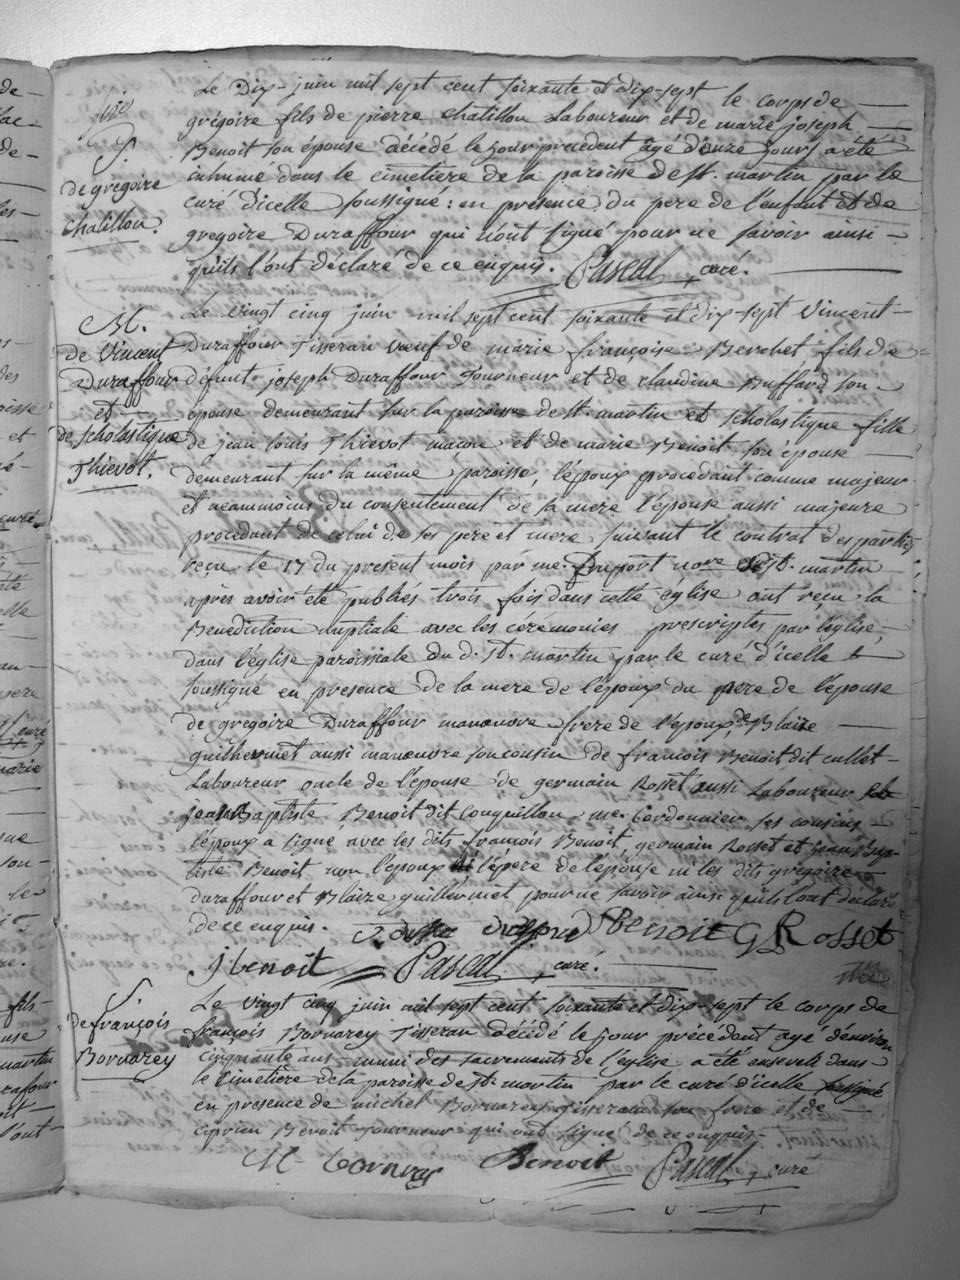 Le Dix-juin mil sept cent soixante et dix-sept le corps de
grégoire fils de pierre Chatillon Laboureur et de marie joseph
Benoit son épouse décédé le jour précédent agé d'onze jours a été
inhumé dans le cimetiere de la paroisse de st. martin par le
curé d'icelle soussigné : en presence du pere de l'enfant et de
gregoire Duraffour qui n'ont signé pour ne savoir ainsi
qu'ils l'ont déclaré de ce enquis. Pascal, curé.
S.
de grégoire
chatillon.
Le vingt cinq juin mil sept cent soixante et dix-sept Vincent
Duraffour Tisseran veuf de marie françoise Berchet fils de
défunt joseph Duraffour Tourneur et de claudine Buffard son
épouse demeurant sur la paroisse de st. martin et Scholastique fille
de jean louis Thievot maçon et de marie Benoit son épouse
demeurant sur la même paroisse, l'époux procédant comme majeur
et neanmoins du consentement de sa mere l'épouse aussi majeure
procedant de celui de ses pere et mere suivant le contrat des parties
reçu le 17 du present mois par me. nore de st. martin
après avoir été publiés trois fois dans cette église ont reçu la
Benediction nuptiale avec les ceremonies prescriptes par l'église,
dans l'église paroissiale du d. st. martin par le curé d'icelle
soussigné en presence de la mere de l'époux du pere de l'épouse
de grégoire Duraffour manœuvre frere de l'epoux, de Blaise
guilhermet aussi manœuvre son cousin de françois Benoit dit cullet
Laboureur oncle de l'épouse de germain Rosset aussi Laboureur
jean Baptiste Benoit dit Couquillon me. Cordonnier ses cousins
l'époux a signé avec les dits françois Benoit, germain Rosset et jean Bap-
tiste Benoit non l'epoux ni le pere de l'épouse ni les dits grégoire
duraffour et Blaize guilhermet pour ne savoir ainsi qu'ils l'ont declaré
de ce enquis. Benoit G Rosset
J benoit Pascal, curé.
M.
de Vincent
Duraffour
et
de Scholastique
Thievot.
Le vingt cinq juin mil sept cent soixante et dix-sept le corps de
françois Bornarey Tisseran décédé le jour précédent agé d'environ
cinquante ans muni des sacrements de l'église a été enseveli dans
le cimetière de la paroisse de st. martin par le curé d'icelle soussigné
en presence de michel Bornarey Tisseran son frere et de
ciprien Benoit Tourneur qui ont signé de ce enquis.
Benoit Pascal, curé
S.
de françois
Bornarey